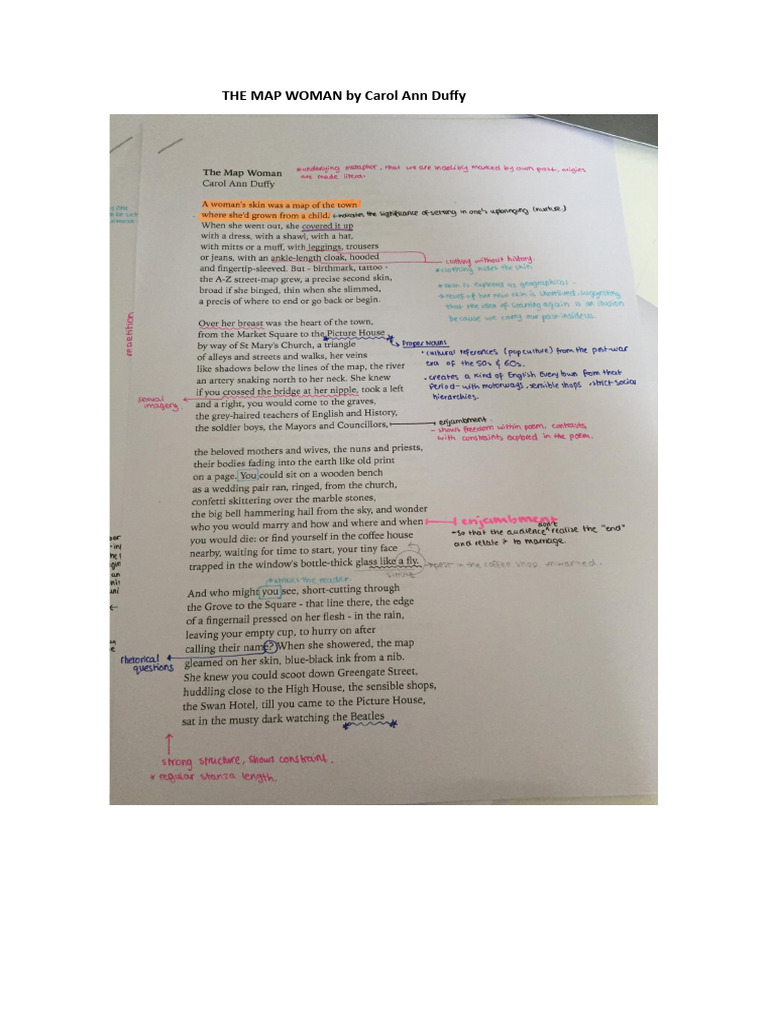 THE MAP WOMAN by Carol Ann Duffy
The Map Woman
Carol Ann Duffy
* underlying metaphor, that we are indelibly marked by own past, origins
are made literal.
A woman's skin was a map of the town
where she'd grown from a child.
indicates the significance of setting in one's upbringing (nurture.)
When she went out, she covered it up
with a dress, with a shawl, with a hat,
with mitts or a muff, with leggings, trousers
or jeans, with an ankle-length cloak, hooded
and fingertip-sleeved. But - birthmark, tattoo -
the A-Z street-map grew, a precise second skin,
broad if she binged, thin when she slimmed,
a precis of where to end or go back or begin.
clothing without history.
* clothing hides the skin
* skin is explored as geographical.
of her new skin is shortlived, suggesting
that the idea of starting again is an illusion
because we carry our past inside us.
repetition
Over her breast was the heart of the town,
from the Market Square to the Picture House
by way of St Mary's Church, a triangle
of alleys and streets and walks, her veins
like shadows below the lines of the map, the river
an artery snaking north to her neck. She knew
if you crossed the bridge at her nipple, took a left
and a right, you would come to the graves,
the grey-haired teachers of English and History,
the soldier boys, the Mayors and Councillors,
Proper Nouns
• cultural references (pop culture) from the post-war
era of the 50s & 60s.
• creates a kind of English Every town from that
period - with motorways, sensible shops, strict social
hierarchies.
sexual
imagery
enjambment.
- shows freedom within poem, contrasts
with constraints explored in the poem.
the beloved mothers and wives, the nuns and priests,
their bodies fading into the earth like old print
on a page. You could sit on a wooden bench
as a wedding pair ran, ringed, from the church,
confetti skittering over the marble stones,
the big bell hammering hail from the sky, and wonder
who you would marry and how and where and when
you would die: or find yourself in the coffee house
nearby, waiting for time to start, your tiny face
trapped in the window's bottle-thick glass like a fly.
enjambment
- so that the audience don't realise the "end"
and relate it to marriage.
simile
pest in the coffee shop, unwanted.
the reader
And who might you see, short-cutting through
the Grove to the Square - that line there, the edge
of a fingernail pressed on her flesh - in the rain,
leaving your empty cup, to hurry on after
calling their name? When she showered, the map
gleamed on her skin, blue-black ink from a nib.
She knew you could scoot down Greengate Street,
huddling close to the High House, the sensible shops,
the Swan Hotel, till you came to the Picture House,
sat in the musty dark watching the Beatles
rhetorical
questions
strong structure, shows constraint.
* regular stanza length.